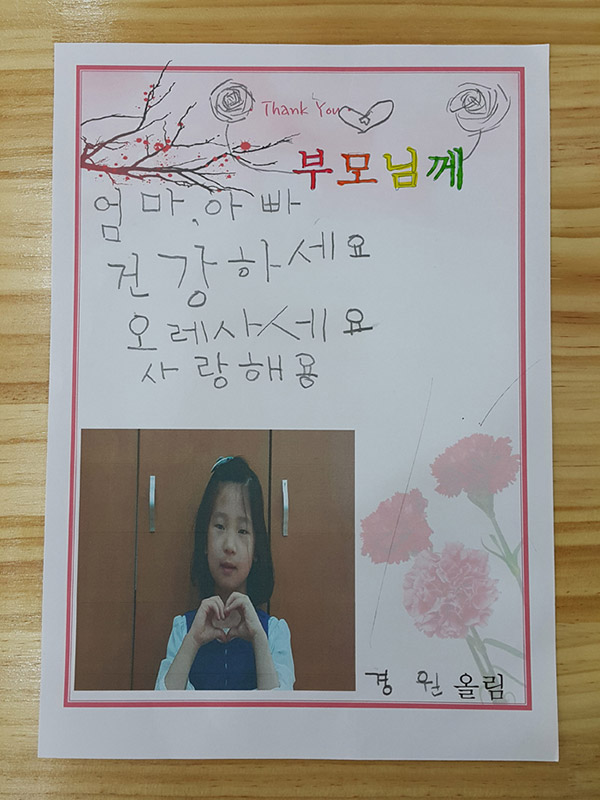 Thank You
부모님께
엄마, 아빠
건강하세요
오레사세요
사랑해용
경원 올림